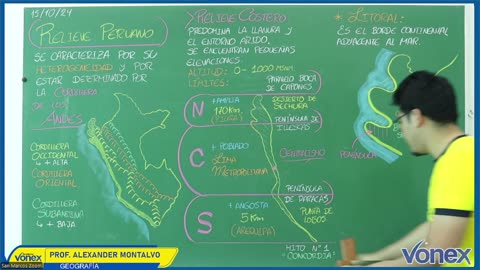 15/10/24
RELIEVE PERUANO
SE CARACTERIZA POR SU
HETEROGENEIDAD Y POR
ESTAR DETERMINADO POR
LA CORDILLERA
DE LOS
ANDES
CORDILLERA
OCCIDENTAL
↳ + ALTA
CORDILLERA
ORIENTAL
CORDILLERA
SUBANDINA
↳ + BAJA
RELIEVE COSTERO
PREDOMINA LA LLANURA Y
EL ENTORNO ÁRIDO,
SE ENCUENTRAN PEQUEÑAS
ELEVACIONES
ALTITUD: 0 - 1000 msnm
LÍMITES:
PARALELO BOCA
DE CAPONES
N
+ AMPLIA
170 Km
(PIURA)
DESIERTO DE
SECHURA
PENÍNSULA DE
ILLESCAS
C
+ POBLADO
LIMA
METROPOLITANA
PENÍNSULA
DE PARACAS
S
+ ANGOSTA
5 Km
(AREQUIPA)
PUNTA DE
LOBOS
HITO N° 1
"CONCORDIA"
* LITORAL:
ES EL BORDE CONTINENTAL
ADYACENTE AL MAR.
PENÍNSULA
San Marcos Zoom
Vonex
PROF. ALEXANDER MONTALVO
GEOGRAFÍA
Vonex